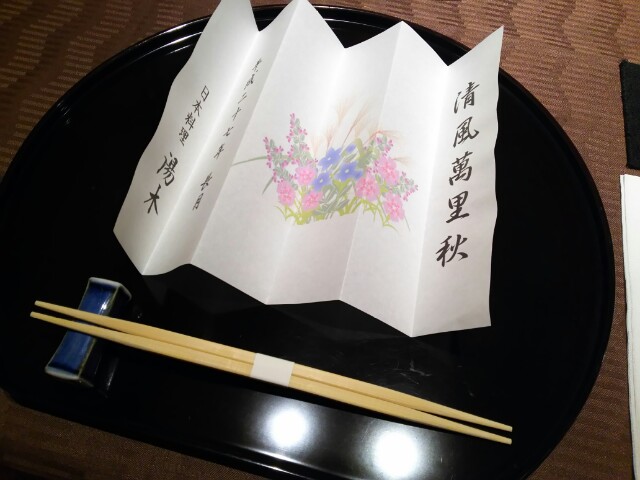 清風萬里秋
日本料理
湯木